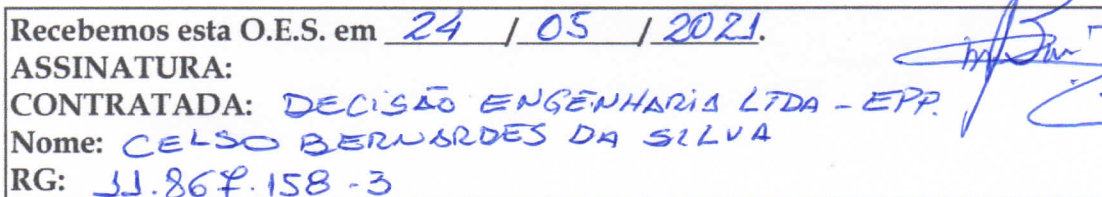 Recebemos esta O.E.S. em 24 / 05 / 2021.
ASSINATURA:
CONTRATADA: DECISÃO ENGENHARIA LTDA - EPP.
Nome: CELSO BERNARDES DA SILVA
RG: 11.867.158-3